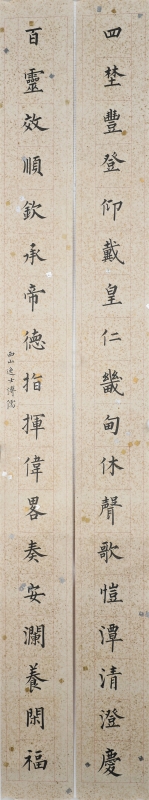 四埜豐登仰戴皇仁畿甸休聲歌愷澤清澄慶
百靈效順欽承帝德指揮偉畧奏安瀾養閑福
西山逸士溥儒